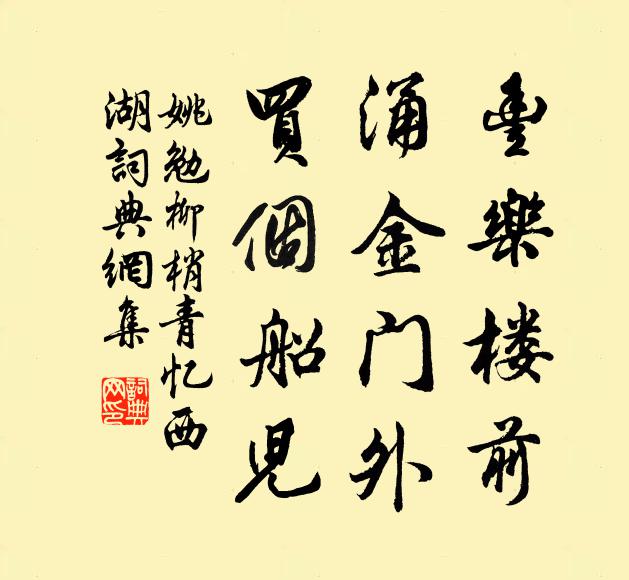 豊樂楼前
涌金门外
買個船児
姚勉柳梢青忆西
湖詞典網集
詞典
网印